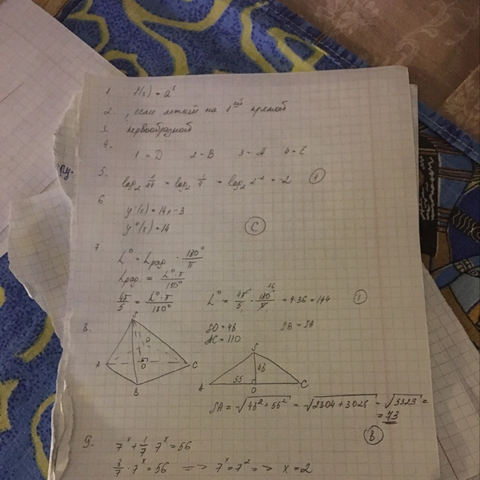 1. f(x) = aˣ
2. , если лежит на 1ой прямой
3. первообразной
4.
1 – D 2 – B 3 – A 4 – E
5. log₂ = log₂ = log₂ 2⁻² = -2
6
y'(x) = 14x - 3
y''(x) = 14 C
7
L° = Lрад · 180°/π
Lрад = L°·π/180°
4π/5 = L°·π/180° L° = 4π/5 · 180°/π = 4·36 = 144
8.
SO = 48 SB = SA
AC = 110
S
A O C
B
S
48
A 55 O C
SA = √48² + 55² = √2304 + 3025 = √5329 =
= 73
B
9. 7ˣ + 1/7 · 7ˣ = 56
· 7ˣ = 56 => 7ˣ = 7² => x = 2